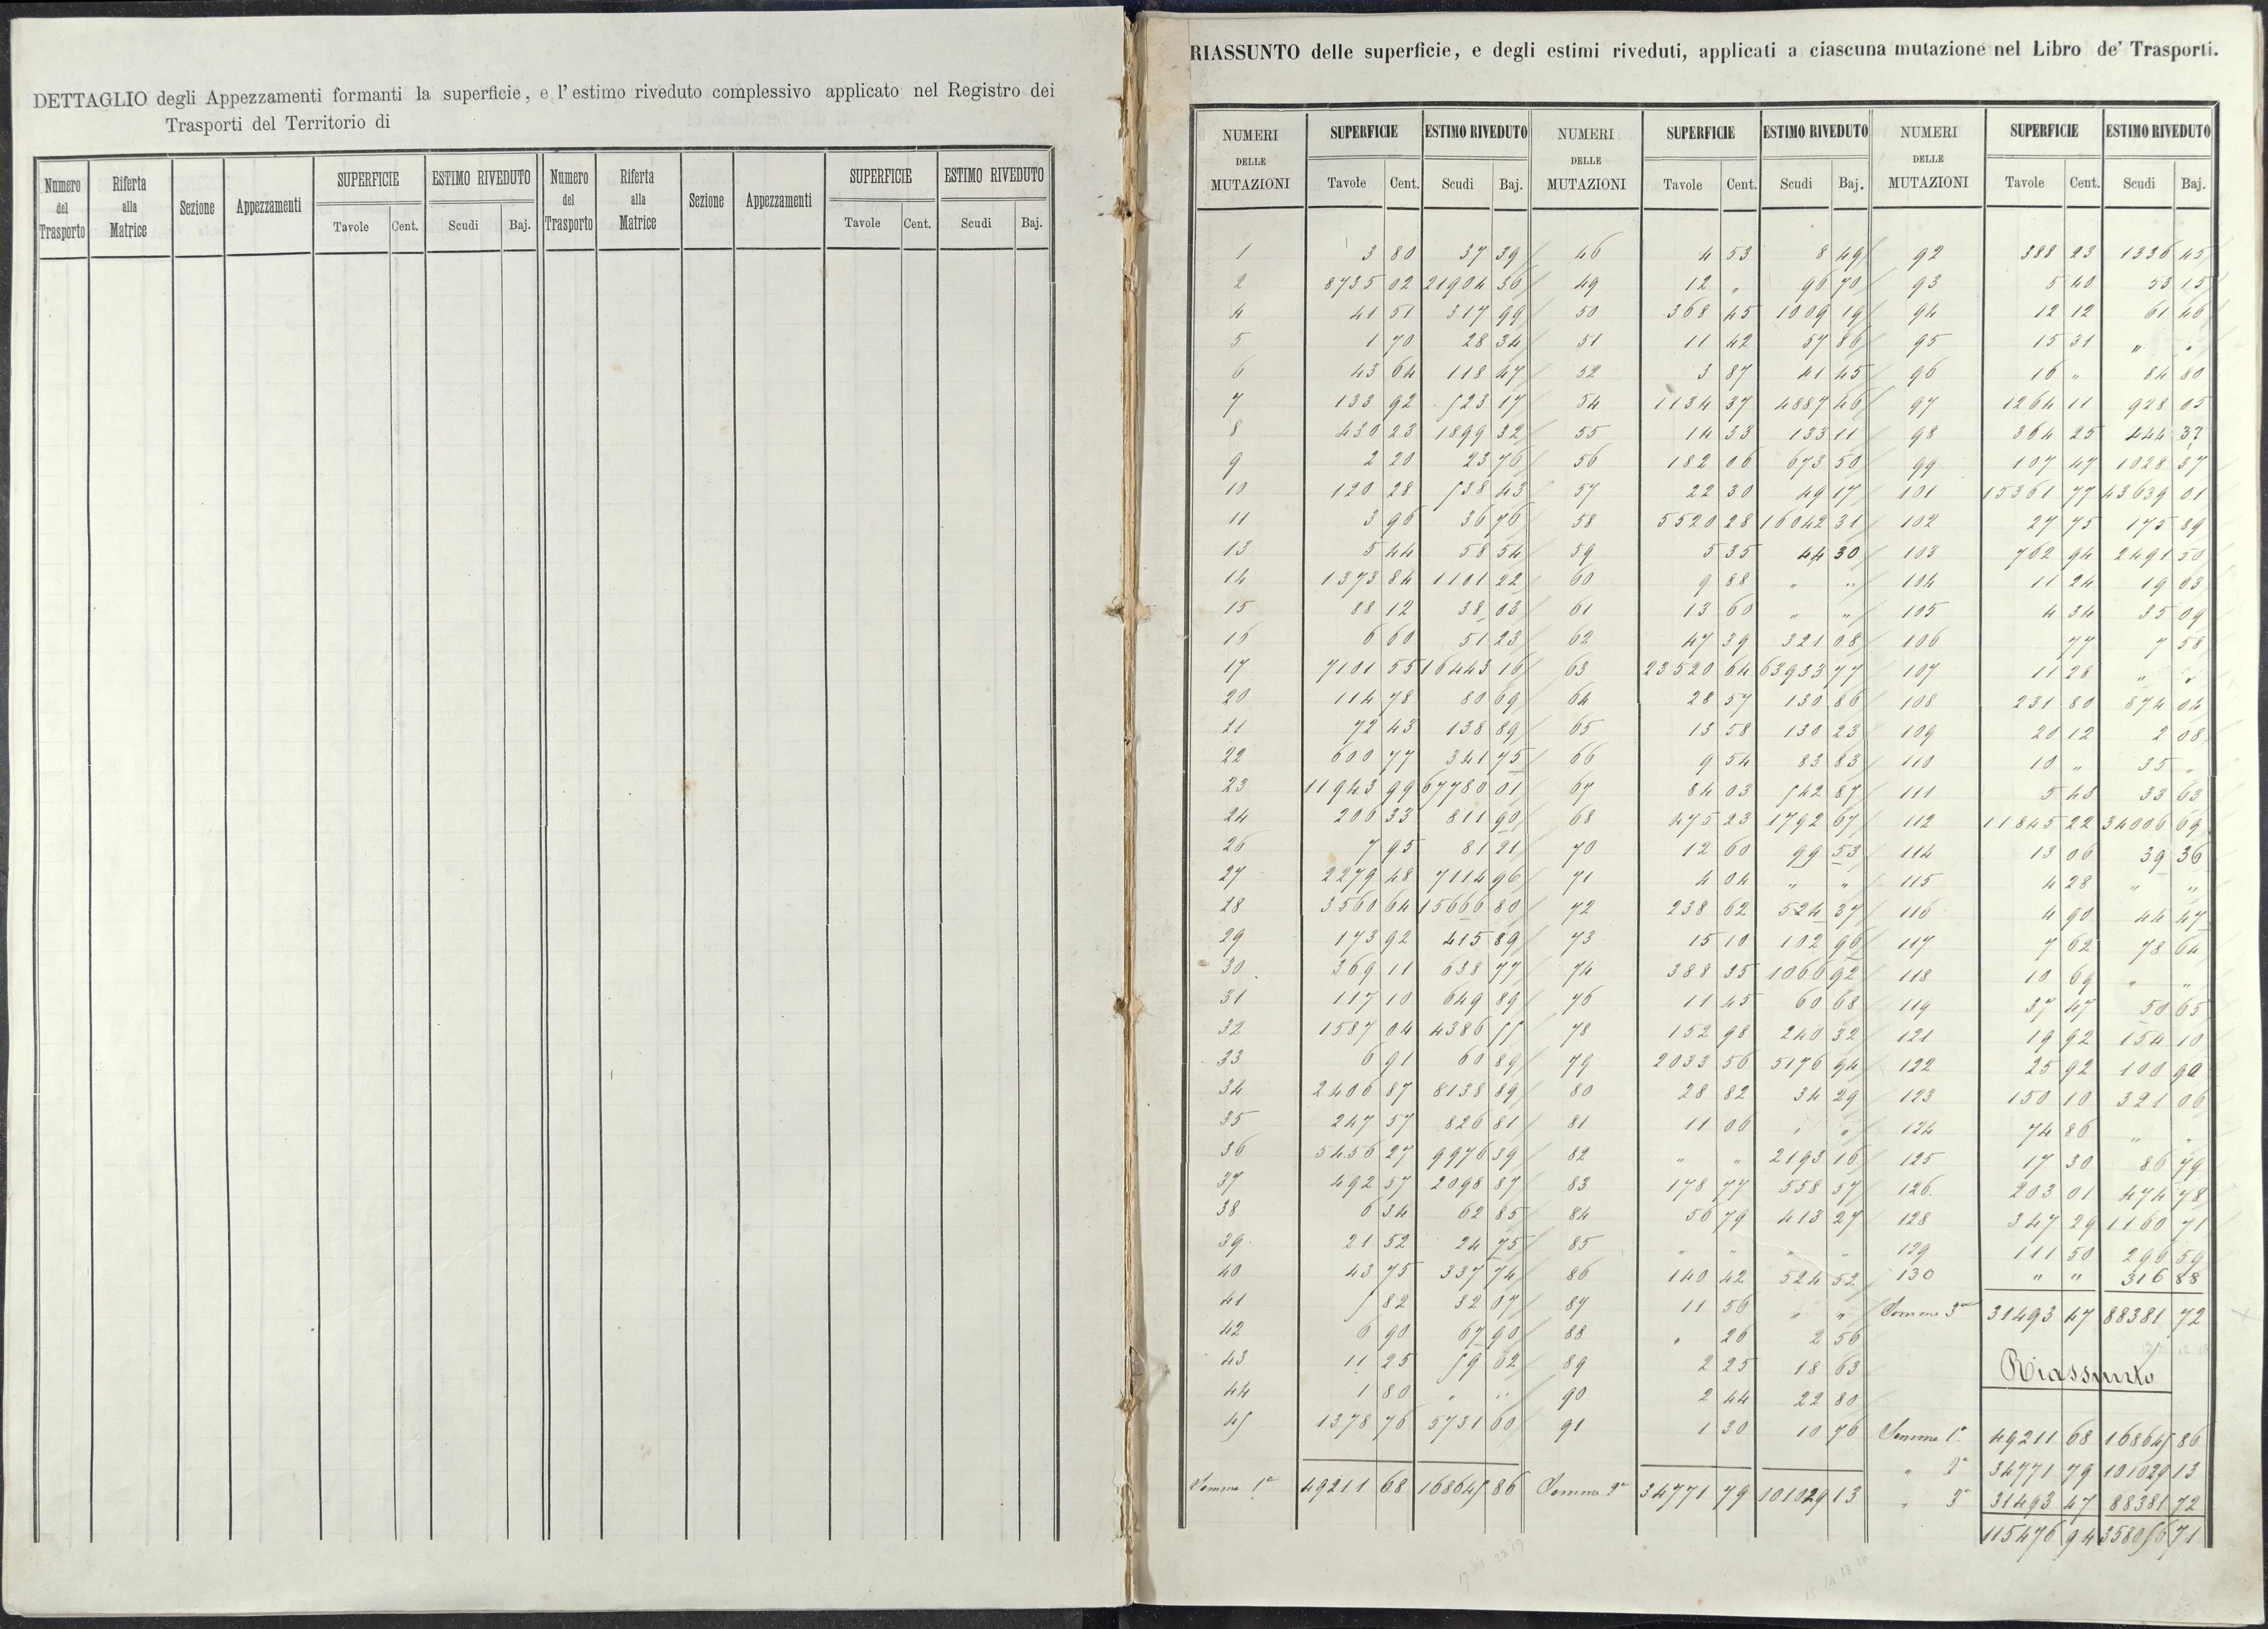 DETTAGLIO degli Appezzamenti formanti la superficie, e l'estimo riveduto complessivo applicato nel Registro dei
Trasporti del Territorio di
Numero del Trasporto Riferta alla Matrice Sezione Appezzamenti SUPERFICIE ESTIMO RIVEDUTO Numero del Trasporto Riferta alla Matrice Sezione Appezzamenti SUPERFICIE ESTIMO RIVEDUTO
Tavole Cent. Scudi Baj. Tavole Cent. Scudi Baj.
RIASSUNTO delle superficie, e degli estimi riveduti, applicati a ciascuna mutazione nel Libro de' Trasporti.
NUMERI DELLE MUTAZIONI SUPERFICIE ESTIMO RIVEDUTO NUMERI DELLE MUTAZIONI SUPERFICIE ESTIMO RIVEDUTO NUMERI DELLE MUTAZIONI SUPERFICIE ESTIMO RIVEDUTO
Tavole Cent. Scudi Baj. Tavole Cent. Scudi Baj. Tavole Cent. Scudi Baj.
1 3 80 37 39 46 4 53 8 49 92 388 23 1336 45
2 8735 02 21904 36 49 12 " 96 70 93 5 40 53 15
4 41 51 317 99 50 368 45 1009 19 94 12 12 61 46
5 1 70 28 34 51 11 42 57 86 95 15 31 " "
6 43 64 118 47 52 3 87 41 45 96 16 " 84 80
7 133 92 523 17 54 1134 37 4887 46 97 1264 11 928 05
8 430 23 1899 32 55 14 33 133 11 98 364 25 444 37
9 2 20 23 76 56 182 06 673 50 99 107 47 1028 37
10 120 28 538 43 57 22 30 49 17 101 15361 77 43639 01
11 3 96 36 76 58 5520 28 16042 31 102 27 75 175 89
13 5 44 58 54 59 5 35 44 30 103 762 94 2491 50
14 1373 84 1101 22 60 9 88 " " 104 11 24 19 63
15 88 12 38 03 61 13 60 " " 105 4 34 35 09
16 6 60 51 23 62 47 39 321 08 106 77 7 58
17 7101 55 16443 16 63 23520 64 63933 77 107 11 28 " "
20 114 78 80 69 64 28 57 130 86 108 231 80 674 04
21 72 43 138 89 65 13 58 130 23 109 20 12 2 08
22 600 77 341 75 66 9 54 83 83 110 10 " 35 "
23 11943 99 67780 01 67 84 03 542 87 111 5 43 33 63
24 206 33 811 90 68 475 23 1792 67 112 11845 22 34006 69
26 7 95 81 21 70 12 60 99 53 114 13 06 39 36
27 2279 48 7114 96 71 4 04 " " 115 4 28 " "
28 3560 64 15666 80 72 238 62 524 37 116 4 90 44 47
29 173 92 415 89 73 15 10 102 96 117 7 62 78 64
30 369 11 638 77 74 388 35 1066 92 118 10 69 " "
31 117 10 649 89 76 11 45 60 68 119 37 47 50 65
32 1587 04 4386 55 78 152 98 240 32 121 19 92 154 10
33 6 91 60 89 79 2033 56 5176 94 122 25 92 100 90
34 2406 87 8138 89 80 28 82 34 29 123 150 10 321 06
35 247 57 826 81 81 11 06 " " 124 74 86 " "
36 5456 27 9976 39 82 " " 2193 16 125 17 30 86 79
37 492 57 2098 87 83 178 77 558 57 126 203 01 474 78
38 6 34 62 85 84 56 79 413 27 128 347 29 1160 71
39 21 52 24 75 85 " " " " 129 111 50 296 59
40 43 75 337 74 86 140 42 524 52 130 " " 316 88
41 5 82 32 07 87 11 56 " " Somma 3a 31493 47 88381 72
42 6 90 67 90 88 " 26 2 56
43 11 25 59 62 89 2 25 18 63 Riassunto
44 1 80 " " 90 2 44 22 80
45 1378 76 5731 60 91 1 30 10 76 Somma 1a 49211 68 168645 86
" 2a 34771 79 101029 13
Somma 1a 49211 68 168645 86 Somma 2a 34771 79 101029 13 " 3a 31493 47 88381 72
115476 94 358056 71